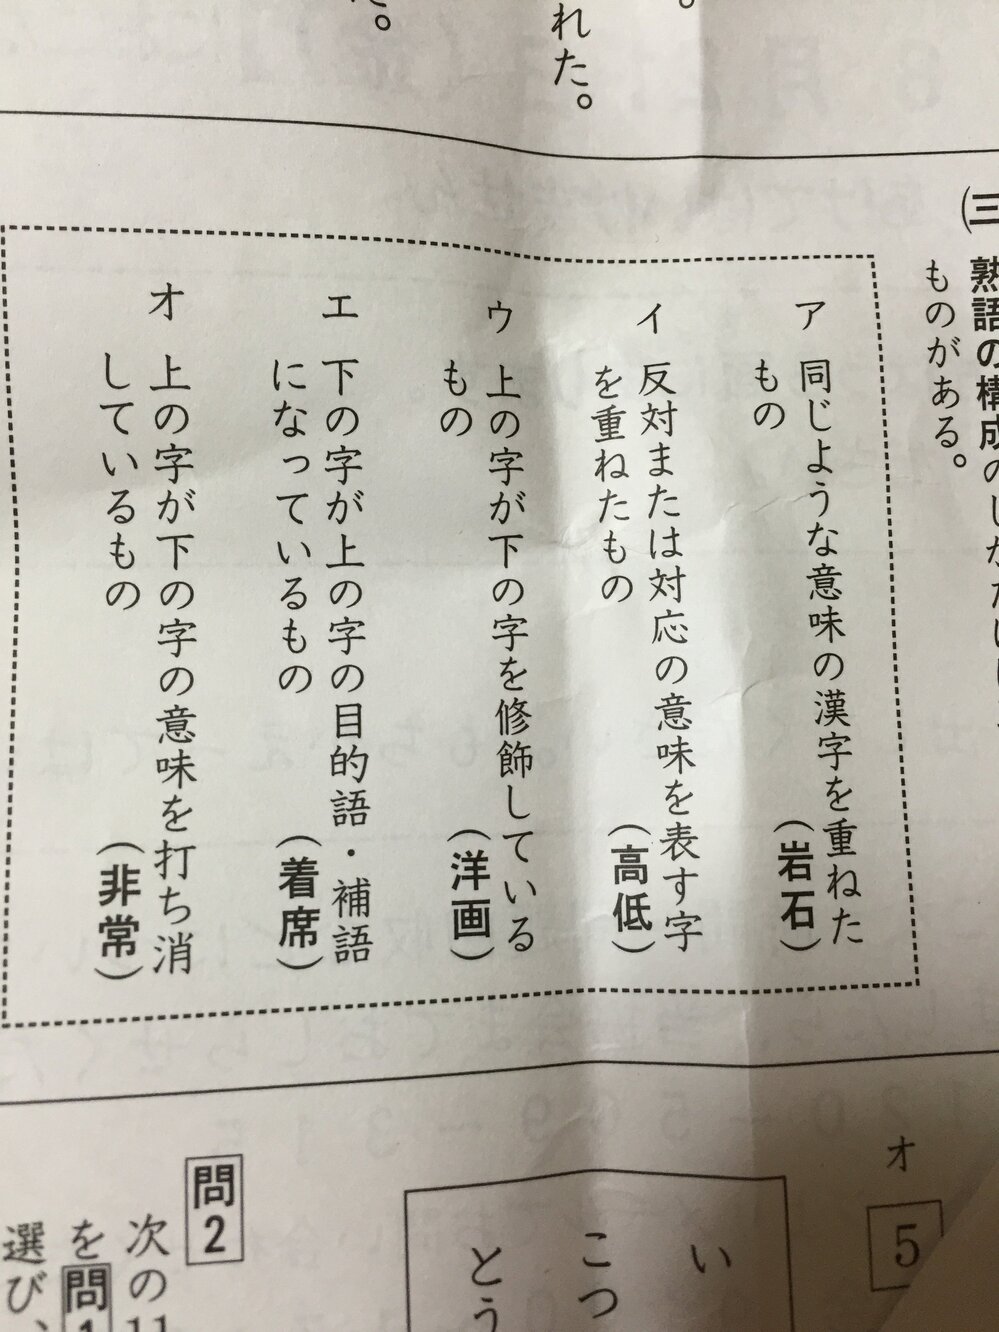 れた。
(三
熟語の構成のしかたには
ものがある。
ア 同じような意味の漢字を重ねた
もの
(岩石)
イ 反対または対応の意味を表す字
を重ねたもの
(高低)
ウ 上の字が下の字を修飾している
もの
(洋画)
エ 下の字が上の字の目的語・補語
になっているもの
(着席)
オ 上の字が下の字の意味を打ち消
しているもの
(非常)
オ
5
い
こつ
とう
問2
次の11
を問1
選び、